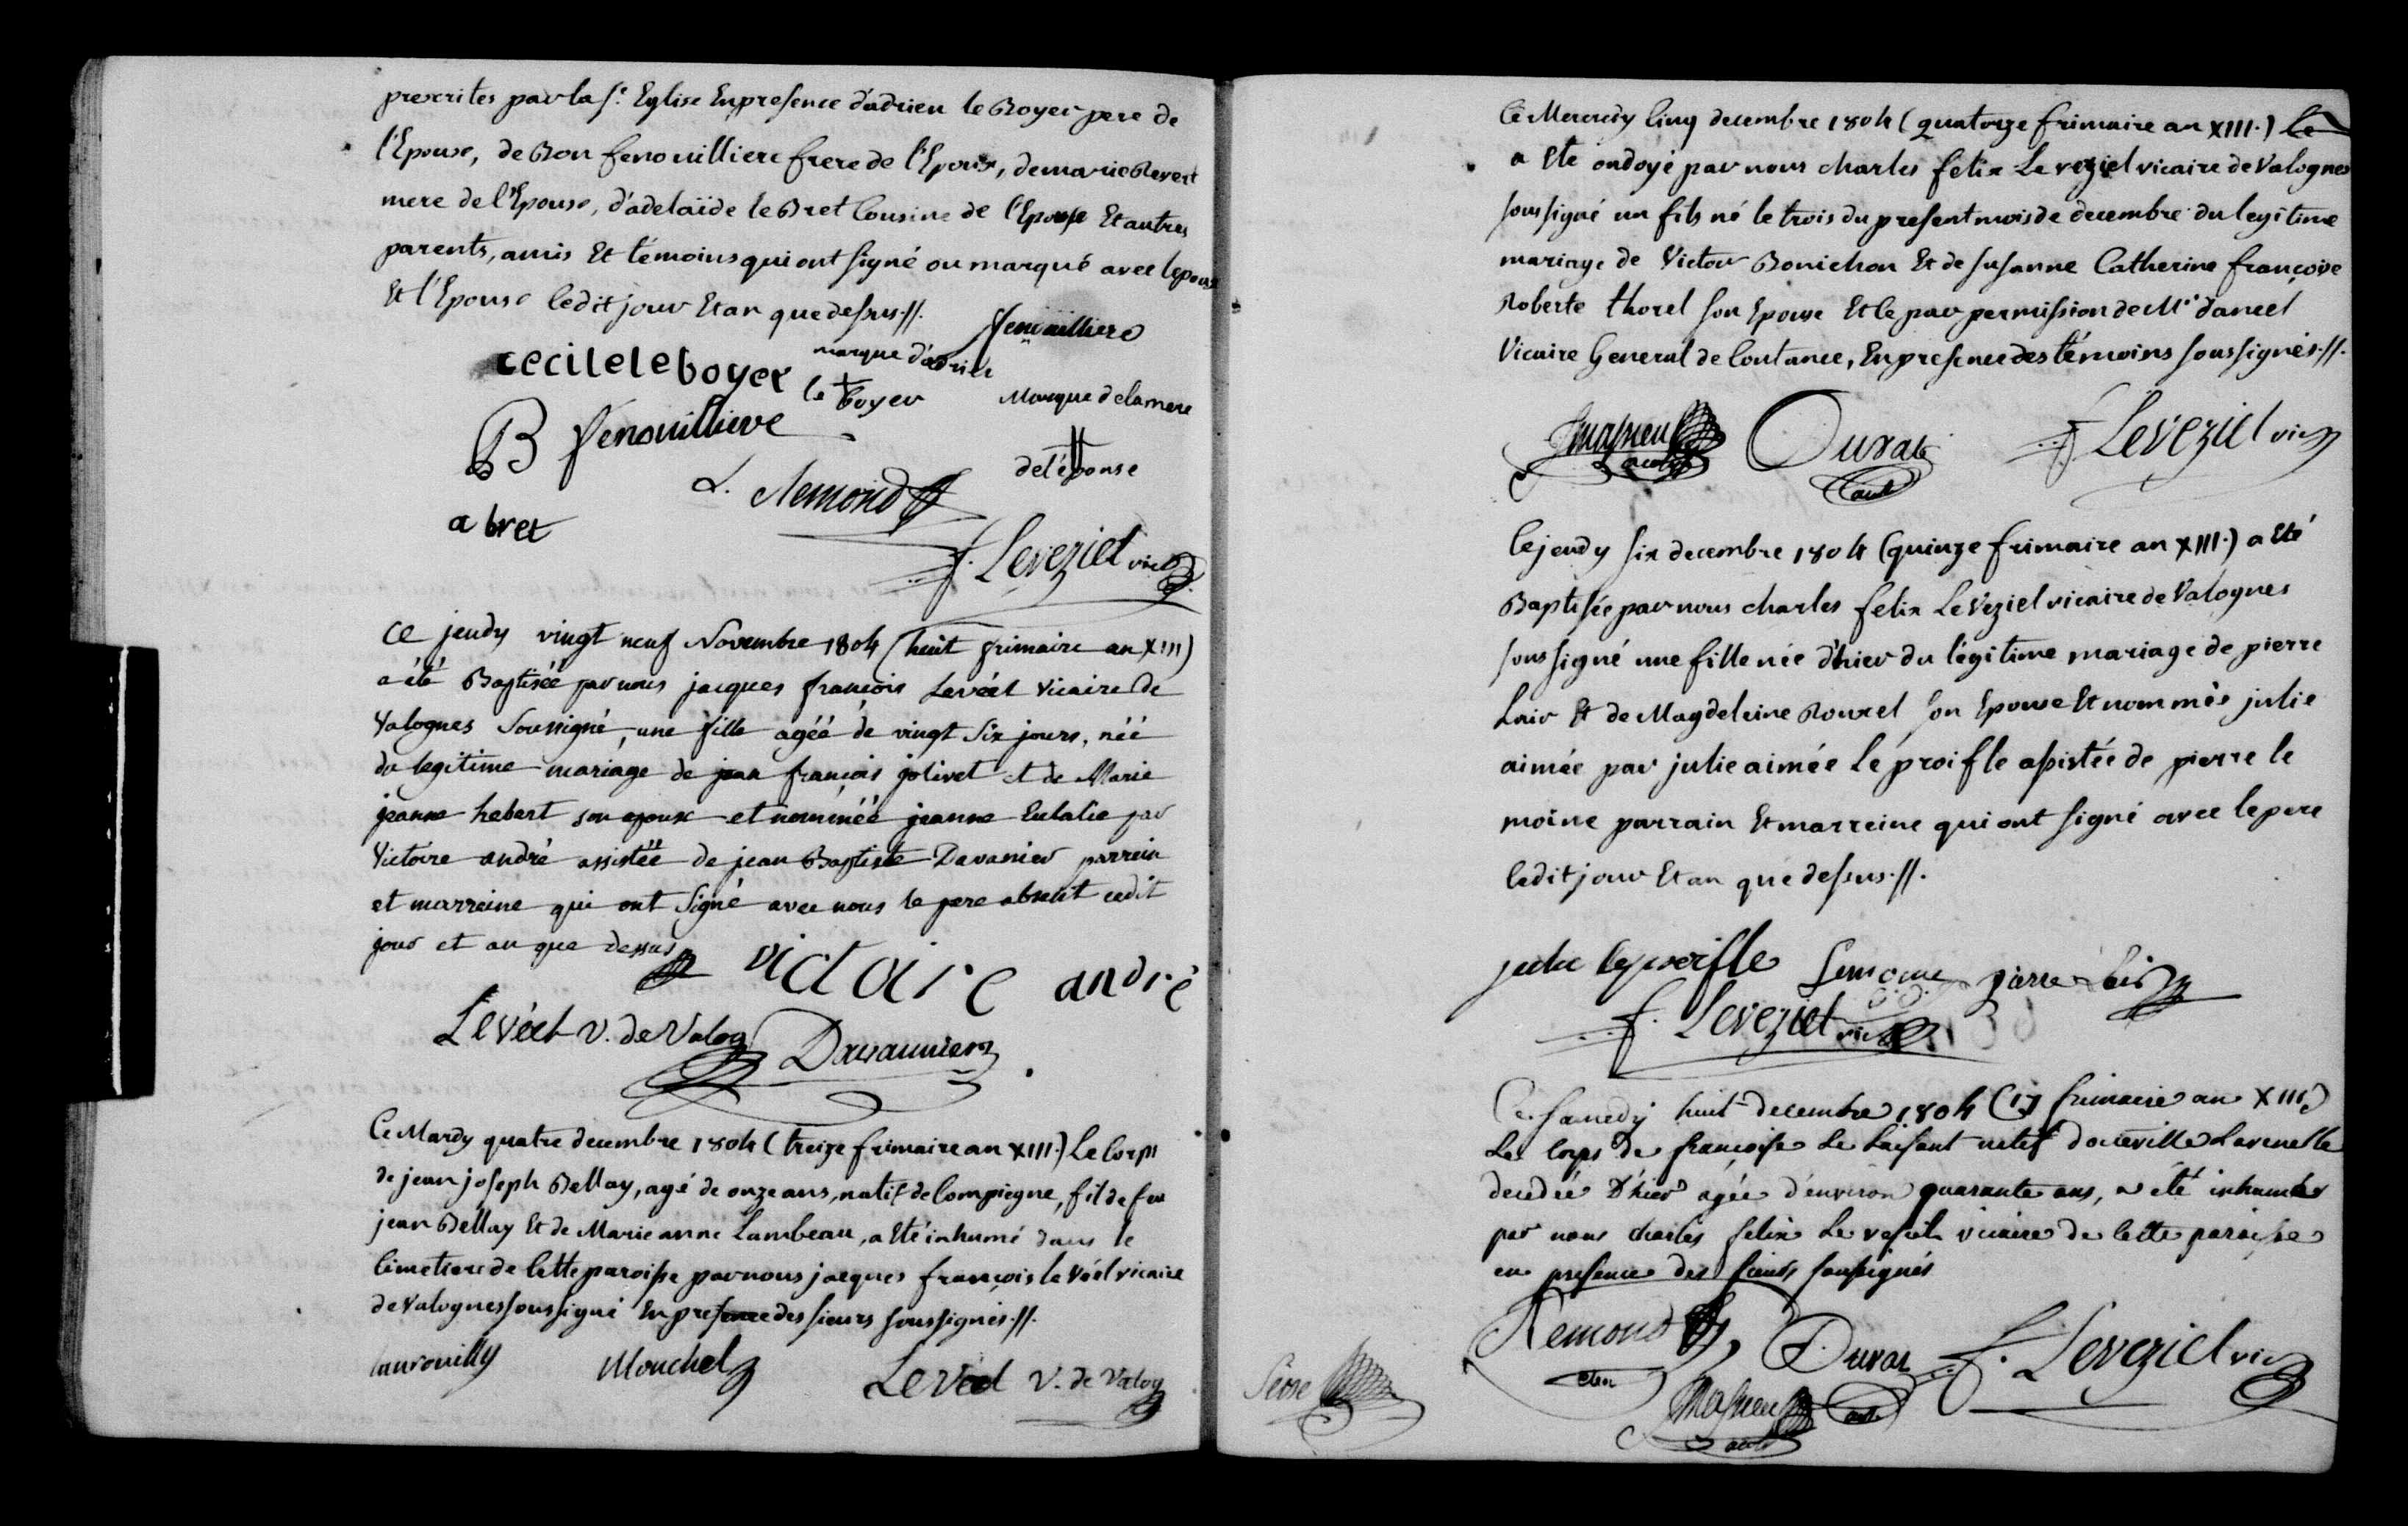 prescrites par la Ste Eglise En presence d'adrien le Boyer pere de
l'Epouse, de Bon fenouilliere frere de l'Epoux, de marie Revert
mere de l'Epouse, d'adelaïde le Bret Cousine de l'Epouse Et autres
parents, amis Et témoins qui ont signé ou marqué avec lepoux
Et l'Epouse ledit jour Et an que dessus.//.
fenouilliere
cecile le boyer
marque d'adrien
le + boyer
Marque de la mere
de l'épouse
B fenouilliere
L. Remond
a bret
f. Leveziel vic
Ce jeudy vingt neuf Novembre 1804 (huit frimaire an XIII)
a été Baptisée par nous jacques françois Levéel Vicaire de
Valognes Soussigné, une fille agéé de vingt Six jours, néé
du legitime mariage de jean françois jolivet et de Marie
jeanne hebert son epouse et nomméé jeanne Eulalie par
Victoire andré assistéé de jean Baptiste Davanier parrein
et marreine qui ont Signé avec nous le pere absent cedit
jour et an que dessus
victoire andré
Levéel V. de Valog
Davaunier
Ce Mardy quatre decembre 1804 (treize frimaire an XIII.) Le Corps
de jean joseph Bellay, agé de onze ans, natif de Compiegne, fil de feu
jean Bellay Et de Marie anne Lambeau, a Eté inhumé dans le
Cimetiere de Cette paroisse par nous jacques françois le Véel vicaire
de Valognes soussigné En presence des sieurs soussignés.//.
Mouchel
Levéel V. de Valog
Ce Mercredy Cinq decembre 1804 (quatorze frimaire an XIII.) le
a Eté ondoyé par nous charles felix Le veziel vicaire de Valognes
soussigné un fils né le trois du present mois de decembre du legitime
mariage de Victor Bonichon Et de susanne Catherine françoise
Roberte thorel son Epouse Et le par permission de Mr. dancel
Vicaire General de Coutance, En presence des témoins soussignés.//.
Duval
f. Leveziel vic
Ce jeudy six decembre 1804 (quinze frimaire an XIII.) a Eté
Baptisée par nous charles felix Le Veziel vicaire de Valognes
soussigné une fille née d'hier du légitime mariage de pierre
Lair Et de Magdeleine Rouxel son Epouse Et nommée julie
aimée par julie aimée Le proifle assistée de pierre le
moine parrain Et marreine qui ont signé avec le pere
ledit jour Et an que dessus.//.
julie leproifle
Lemoine
pierre lair
f. Leveziel vic
Ce samedy huit decembre 1804 (17 frimaire an XIII.)
Le Corps de françoise Le Laisant natif d'octeville Lavenelle
decedée d'hier agée d'environ quarante ans, a été inhumée
par nous charles felix Le vesiel vicaire de Cette paroisse
en presence des sieurs soussignés
Remond
Duval
f. Leveziel vic